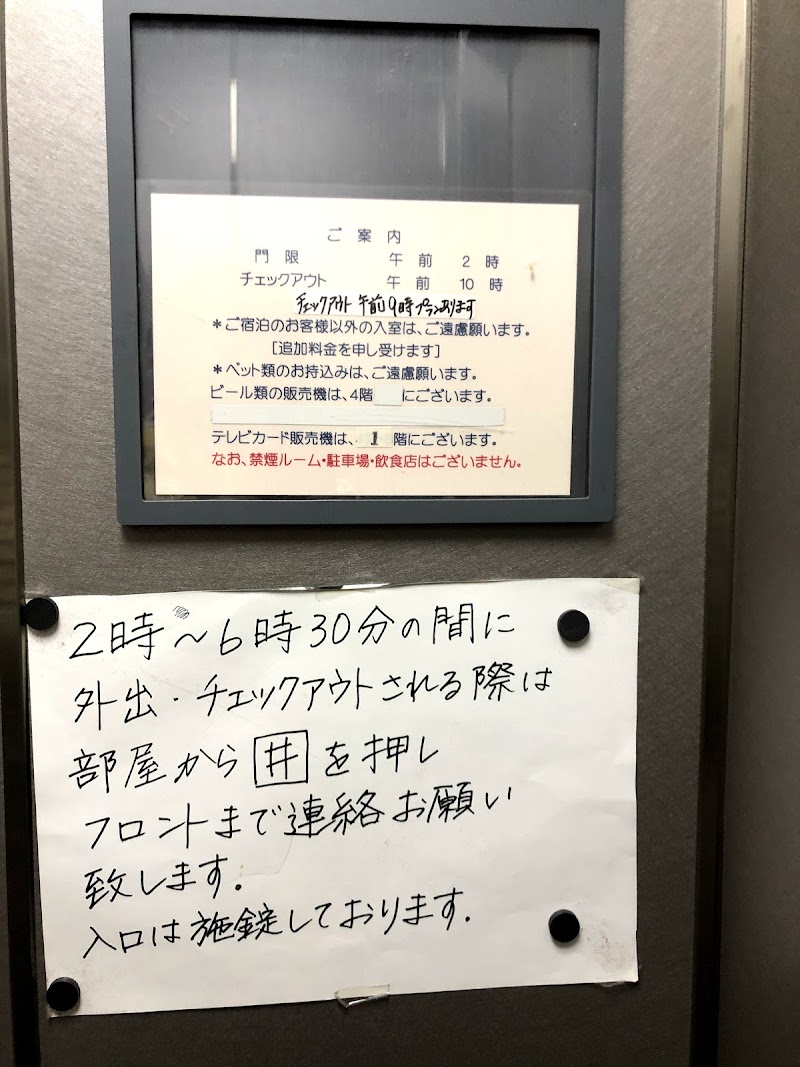 ご案内
門限 午前 2時
チェックアウト 午前 10時
チェックアウト 午前9時プランあります
＊ご宿泊のお客様以外の入室は、ご遠慮願います。
［追加料金を申し受けます］
＊ペット類のお持込みは、ご遠慮願います。
ビール類の販売機は、4階 にございます。
テレビカード販売機は、1階にございます。
なお、禁煙ルーム・駐車場・飲食店はございません。
2時～6時30分の間に
外出・チェックアウトされる際は
部屋から井を押し
フロントまで連絡お願い
致します。
入口は施錠しております.